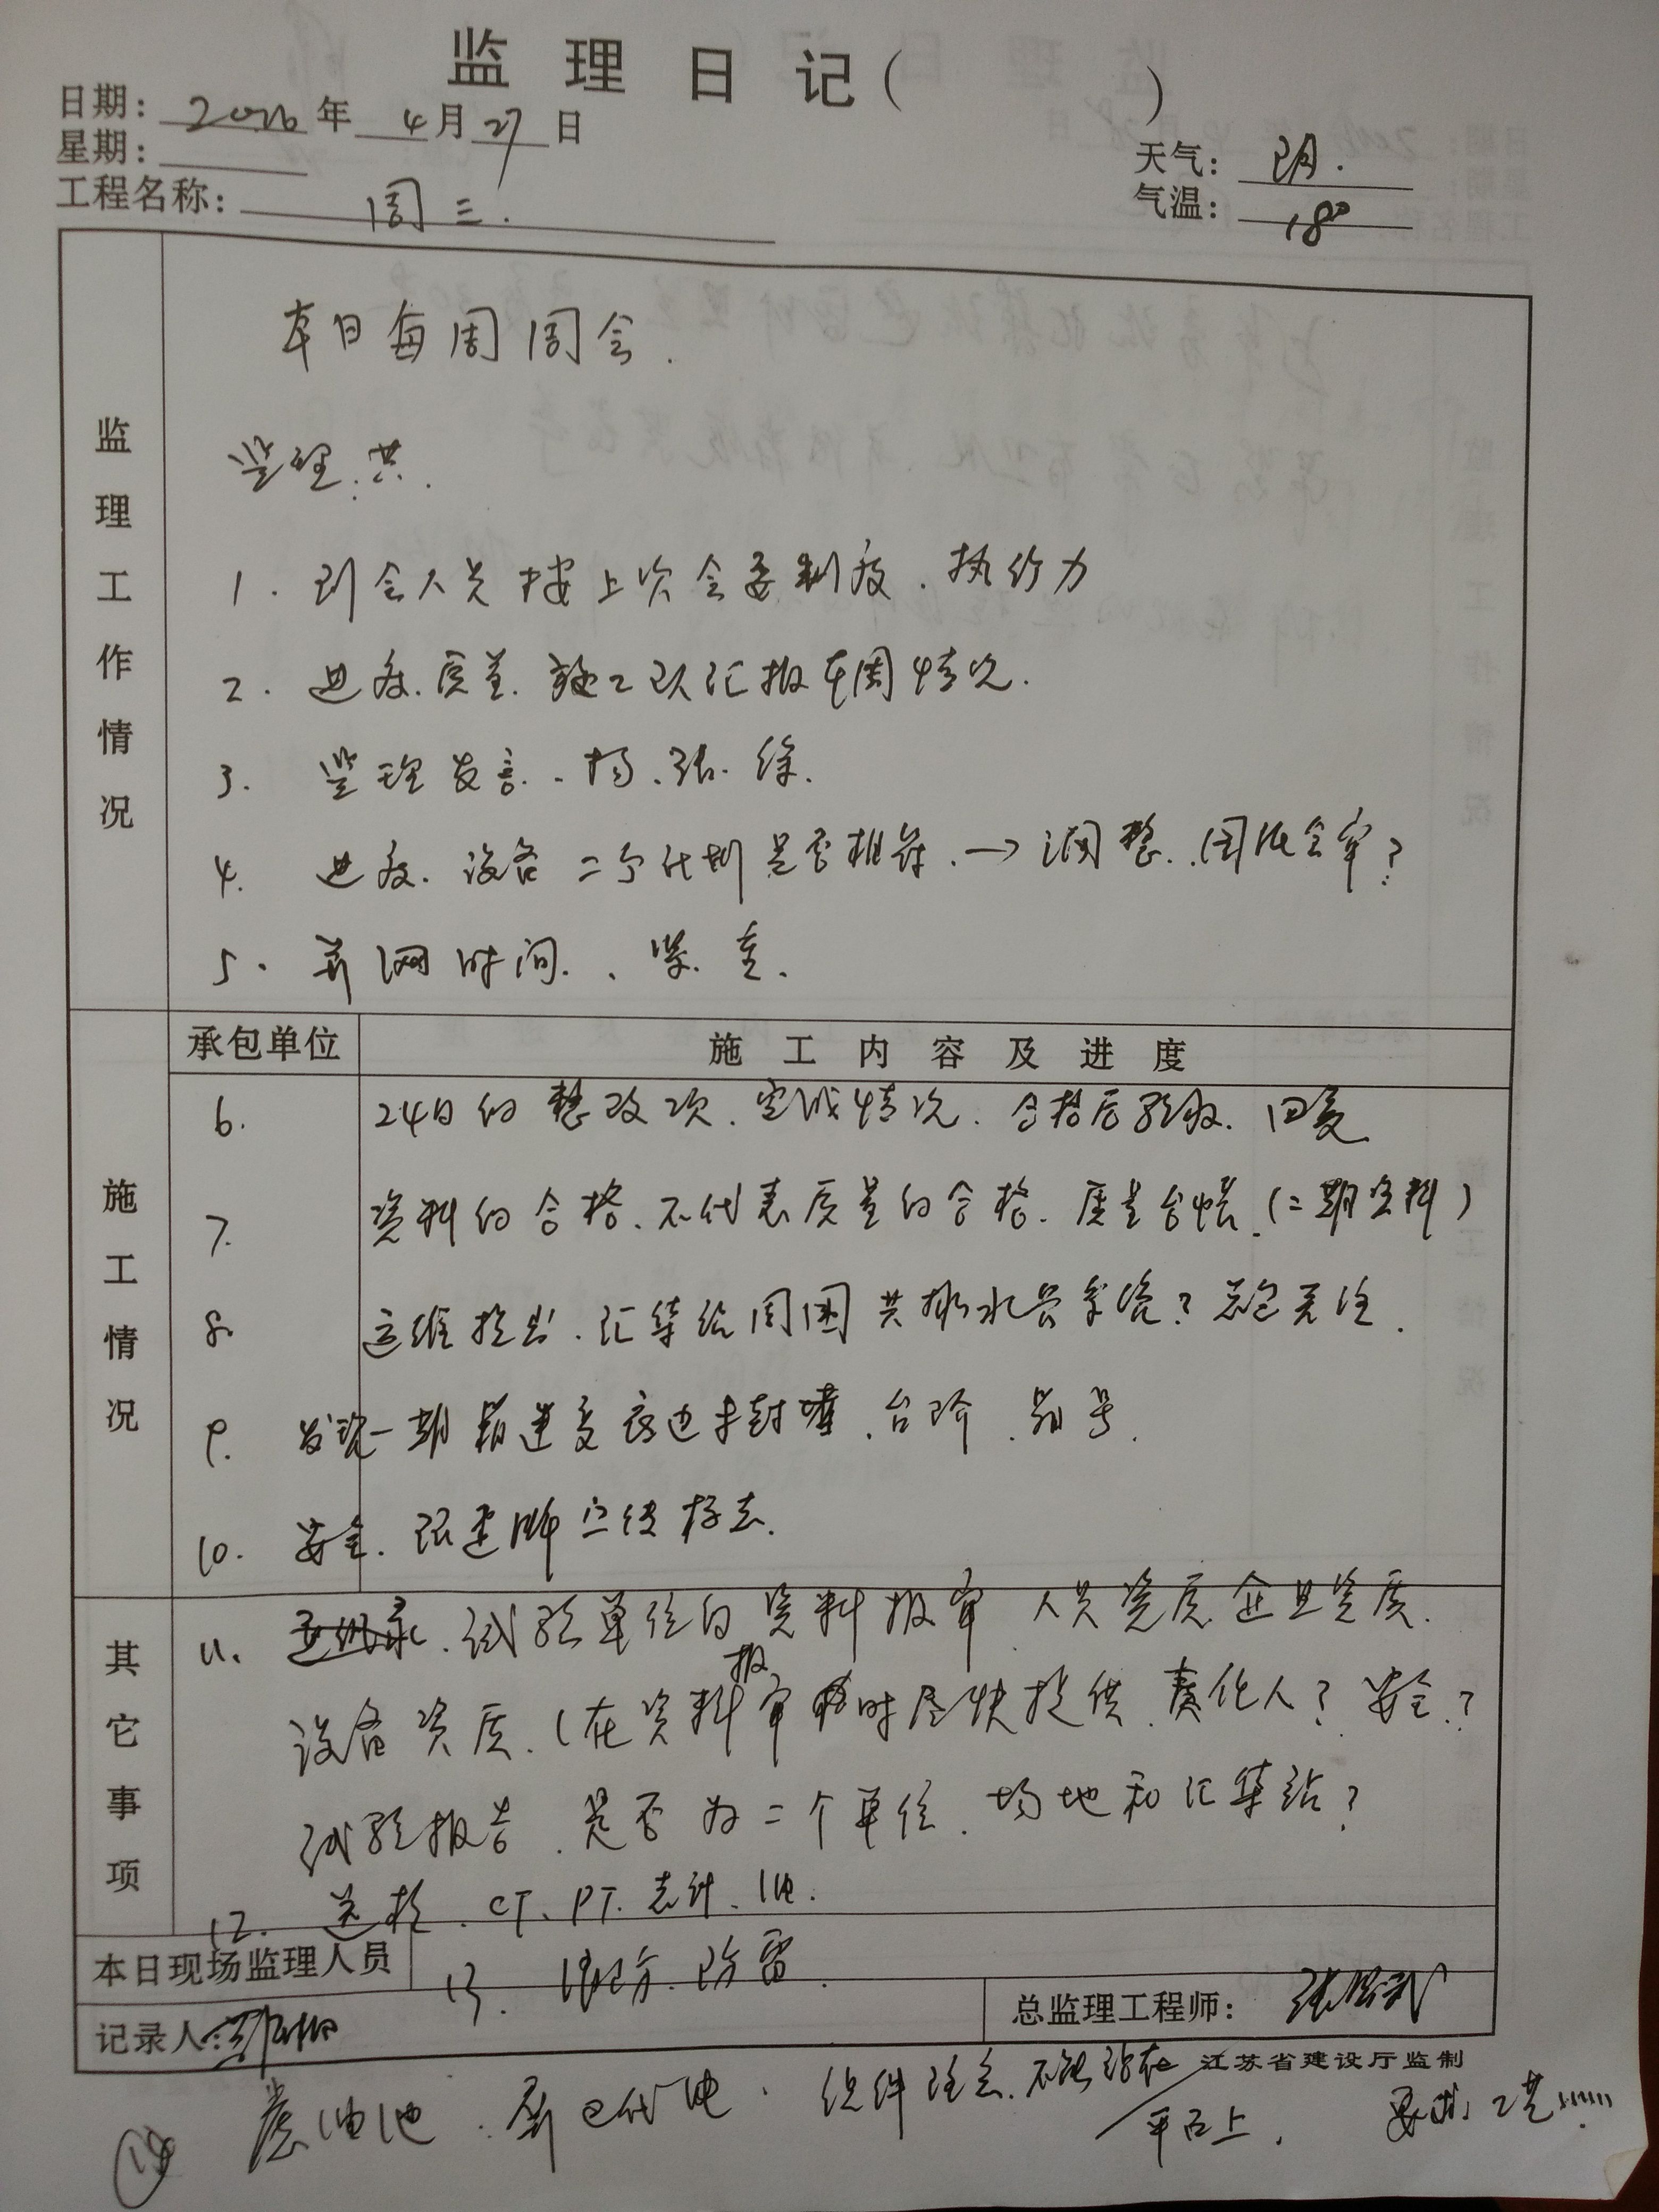 监理日记（ ）
日期：2016年4月27日
星期：
天气：阴.
气温：18°
工程名称：周三.
监理工作情况
本日每周周会.
监理:洪.
1. 到会人员按上次会委制度.执行力
2. 进度.质量.施工队汇报本周情况.
3. 监理发言..杨.张.徐.
4. 进度.设备二个计划是否相符.→调整.图纸会审?
5. 并网时间..紧.重.
承包单位 施工内容及进度
施工情况
6. 24日的整改项.完成情况.合格后验收.回复
7. 资料的合格.不代表质量的合格.质量台帐.(二期资料)
8. 运维提出.汇集站周围共排水 ?总包关注.
9. 发现一期箱逆变底边未封堵.台阶.编号.
10. 安全.跟进牌宣传标志.
其它事项
11. .试验单位的资料报审.人员资质.企业资质.
设备资质.(在资料报审时尽快提供.责任人?安全?
试验报告.是否为二个单位.场地和汇集站?
12. 送检.CT.PT.表计.
本日现场监理人员
13. 消防.防雷.
记录人：
总监理工程师：
江苏省建设厅监制
14 油池. 组件注意.不能站在
平台上.
工艺!!!!!!